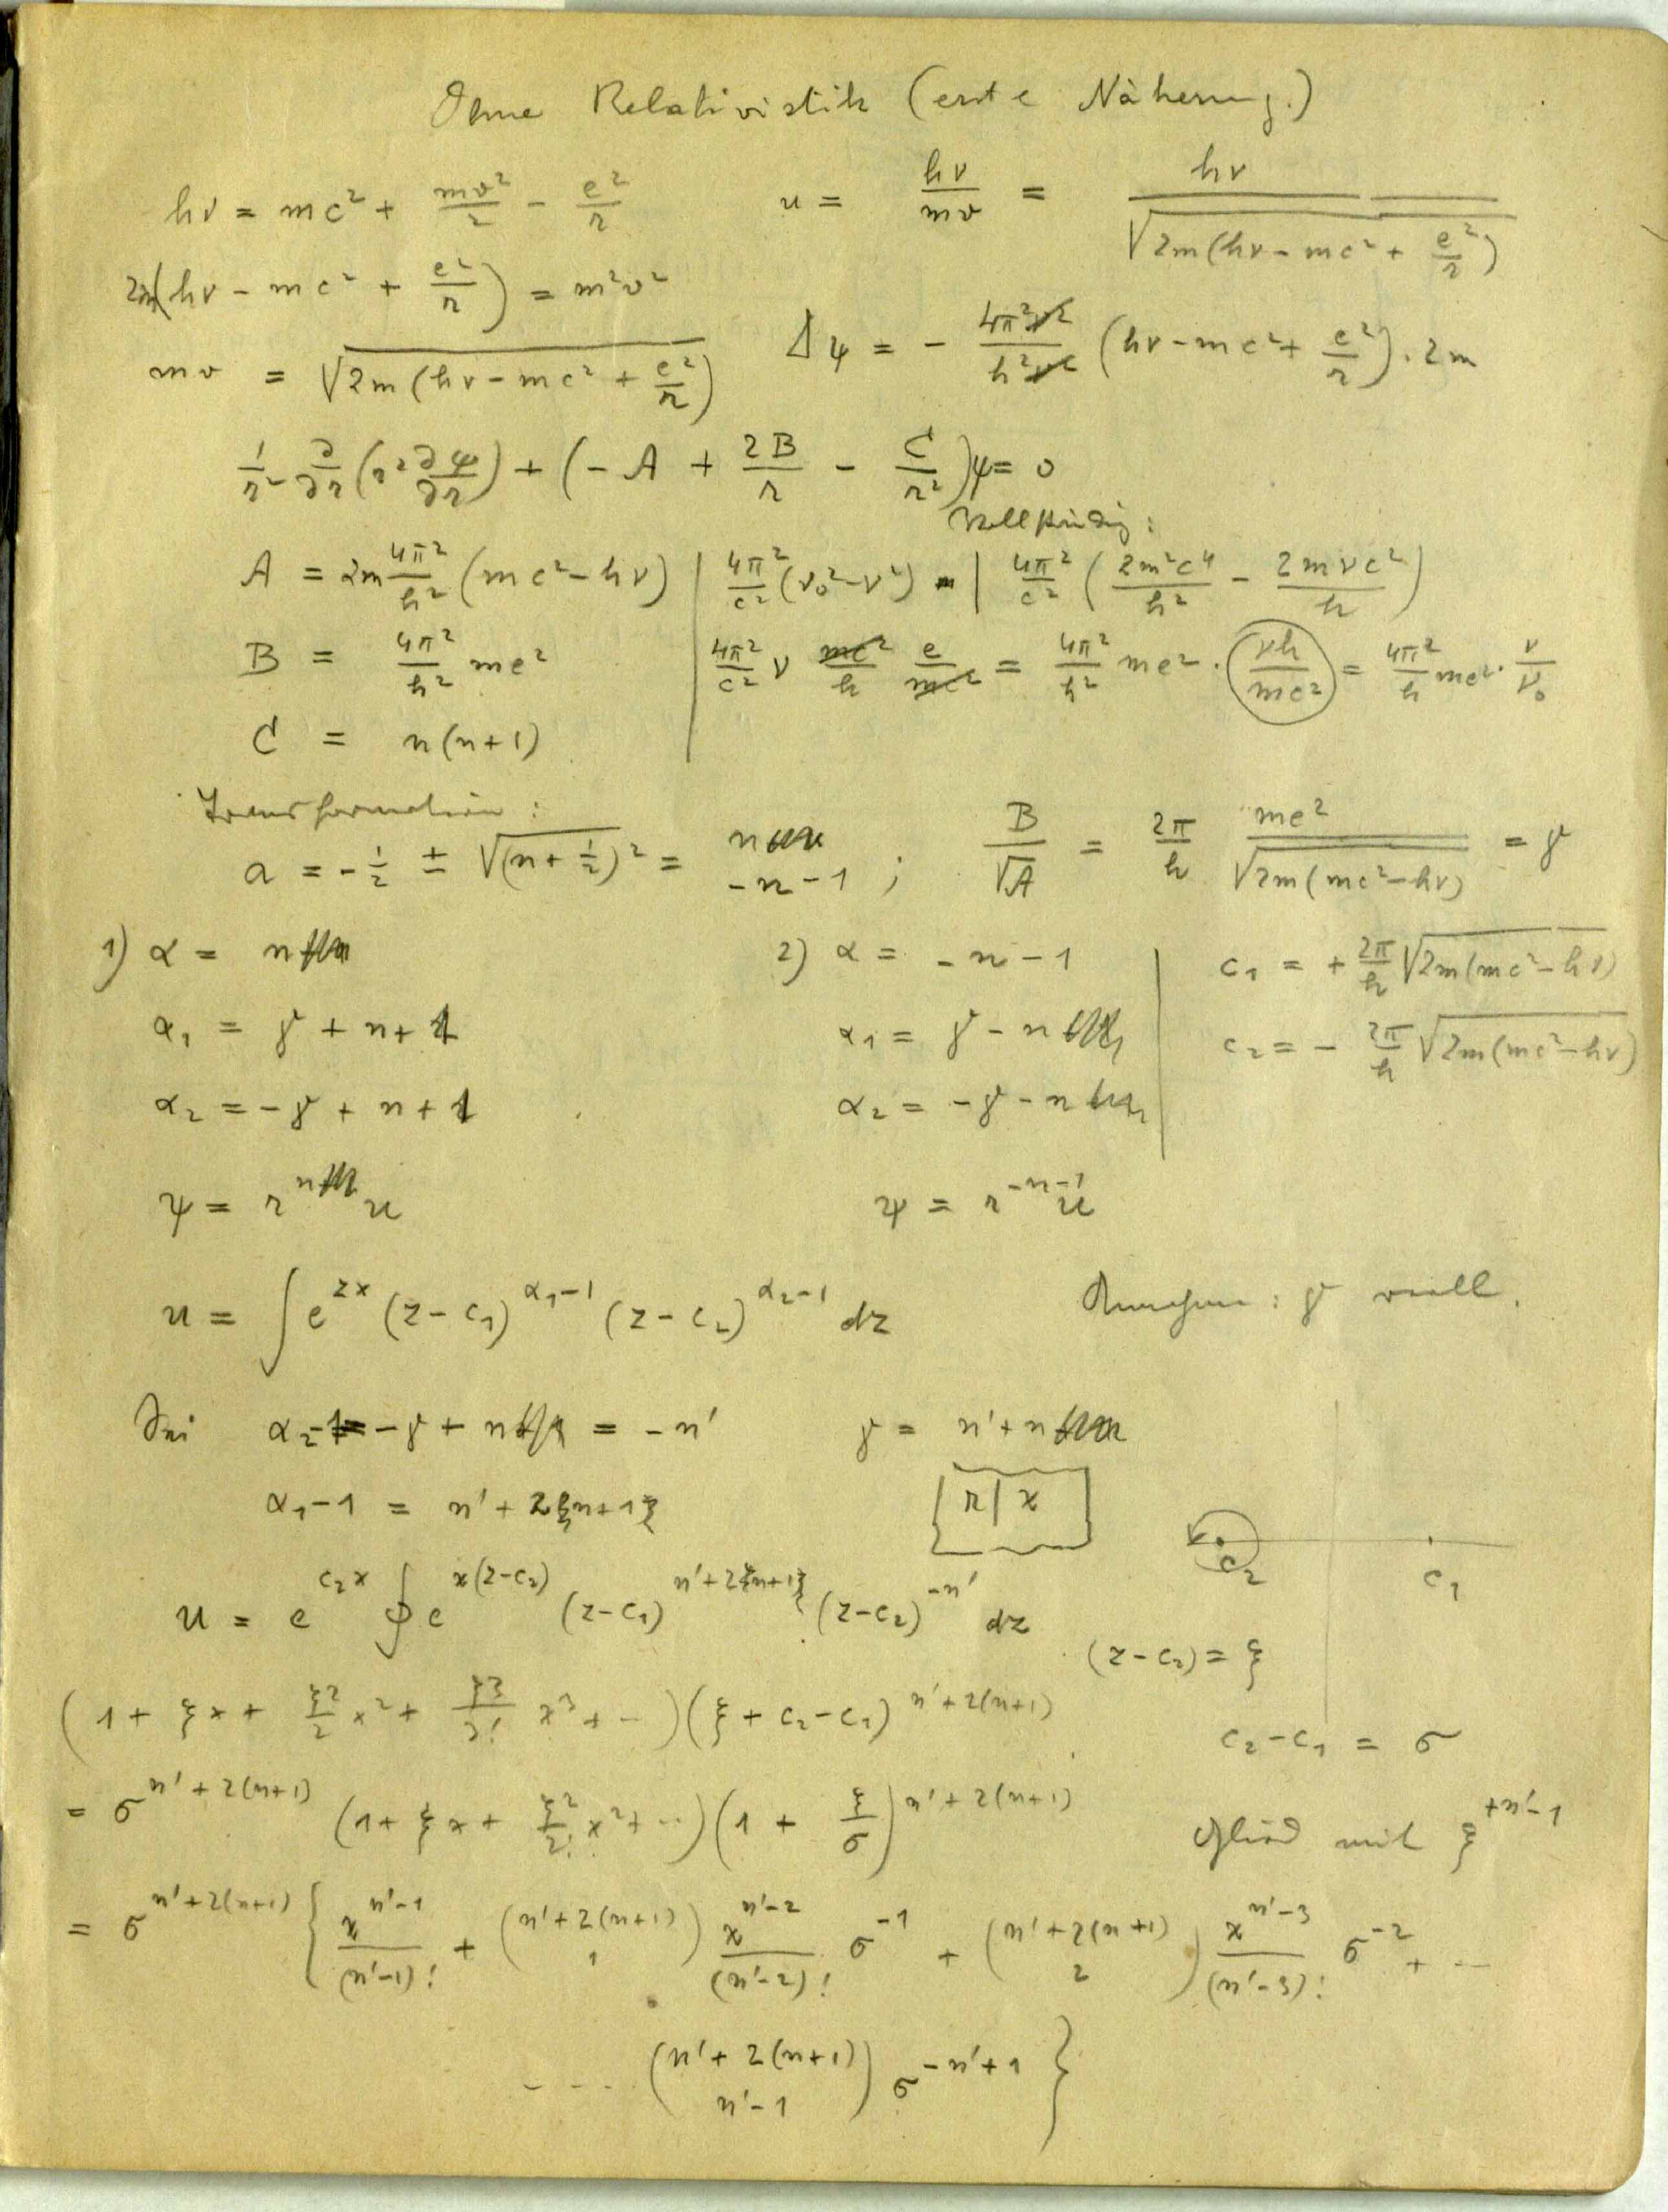 Ohne Relativistik (erste Näherung.)
hν = mc² + mv²/2 - e²/r    u = hν/mv = hν/√(2m(hν - mc² + e²/r))
2m(hν - mc² + e²/r) = m²v²
mv = √(2m(hν - mc² + e²/r))    Δψ = - 4π²ν²/h²ν² (hν - mc² + e²/r) · 2m
1/r² ∂/∂r (r² ∂ψ/∂r) + (-A + 2B/r - C/r²)ψ = 0
Vollständig:
A = 2m 4π²/h² (mc² - hν) | 4π²/c² (ν₀² - ν²) = | 4π²/c² (2m²c⁴/h² - 2mνc²/h)
B = 4π²/h² me² | 4π²/c² ν mc²/h e/mc² = 4π²/h² me² · νh/mc² = 4π²/h me² · ν/ν₀
C = n(n+1)
Transformation:
α = -1/2 ± √(n + 1/2)² = n
-n-1 ;    B/√A = 2π/h me²/√(2m(mc² - hν)) = γ
1) α = n    2) α = -n-1 | c₁ = + 2π/h √(2m(mc² - hν))
α₁ = γ + n + 1    α₁ = γ - n | c₂ = - 2π/h √(2m(mc² - hν))
α₂ = -γ + n + 1    α₂ = -γ - n
ψ = rⁿ u    ψ = r⁻ⁿ⁻¹ u
u = ∫ e^{zx} (z - c₁)^{α₁-1} (z - c₂)^{α₂-1} dz    γ reell.
Sei α₂-1 = -γ + n = -n'    γ = n' + n
α₁-1 = n' + 2{n+1}    r | x
c₂    c₁
u = e^{c₂x} ∮ e^{x(z-c₂)} (z - c₁)^{n'+2{n+1}} (z - c₂)^{-n'} dz
(z - c₂) = ξ
(1 + ξx + ξ²/2 x² + ξ³/3! x³ + ··) (ξ + c₂ - c₁)^{n'+2(n+1)}    c₂ - c₁ = σ
= σ^{n'+2(n+1)} (1 + ξx + ξ²/2! x² + ···) (1 + ξ/σ)^{n'+2(n+1)}    Glied mit ξ^{+n'-1}
= σ^{n'+2(n+1)} { x^{n'-1}/(n'-1)! + (n'+2(n+1) 1) x^{n'-2}/(n'-2)! σ⁻¹ + (n'+2(n+1) 2) x^{n'-3}/(n'-3)! σ⁻² + ···
···· (n'+2(n+1) n'-1) σ^{-n'+1} }